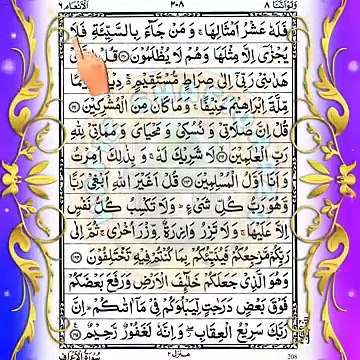 وَلَوْاَنَّنَا ٨ ٢٠٨ اَلْاَنْعَام ٦
فَلَهٗ عَشْرُ اَمْثَالِهَا ۚ وَ مَنْ جَآءَ بِالسَّيِّئَةِ فَلَا
يُجْزٰۤى اِلَّا مِثْلَهَا وَهُمْ لَا يُظْلَمُوْنَ ﴿۱۶۰﴾ قُلْ
هَدٰىنِيْ رَبِّيْۤ اِلٰى صِرَاطٍ مُّسْتَقِيْمٍ ۚ۬ دِيْنًا
مِّلَّةَ اِبْرٰهِيْمَ حَنِيْفًا ۚ وَمَا كَانَ مِنَ الْمُشْرِكِيْنَ ﴿۱۶۱﴾
قُلْ اِنَّ صَلَاتِيْ وَ نُسُكِيْ وَ مَحْيَايَ وَ مَمَاتِيْ لِلّٰهِ
رَبِّ الْعٰلَمِيْنَ ﴿۱۶۲﴾ لَا شَرِيْكَ لَهٗ ۚ وَ بِذٰلِكَ اُمِرْتُ
وَ اَنَا اَوَّلُ الْمُسْلِمِيْنَ ﴿۱۶۳﴾ قُلْ اَغَيْرَ اللّٰهِ اَبْغِيْ رَبًّا
وَّهُوَ رَبُّ كُلِّ شَيْءٍ ؕ وَ لَا تَكْسِبُ كُلُّ نَفْسٍ
اِلَّا عَلَيْهَا ۚ وَ لَا تَزِرُ وَازِرَةٌ وِّزْرَ اُخْرٰى ۚ ثُمَّ اِلٰى
رَبِّكُمْ مَّرْجِعُكُمْ فَيُنَبِّئُكُمْ بِمَا كُنْتُمْ فِيْهِ تَخْتَلِفُوْنَ ﴿۱۶۴﴾
وَهُوَ الَّذِيْ جَعَلَكُمْ خَلٰٓئِفَ الْاَرْضِ وَرَفَعَ بَعْضَكُمْ
فَوْقَ بَعْضٍ دَرَجٰتٍ لِّيَبْلُوَكُمْ فِيْ مَاۤ اٰتٰىكُمْ ؕ اِنَّ
رَبَّكَ سَرِيْعُ الْعِقَابِ ۖ وَ اِنَّهٗ لَغَفُوْرٌ رَّحِيْمٌ ﴿۱۶۵﴾
سُوْرَةُ الْاَعْرَافِ منزل ٢ 208